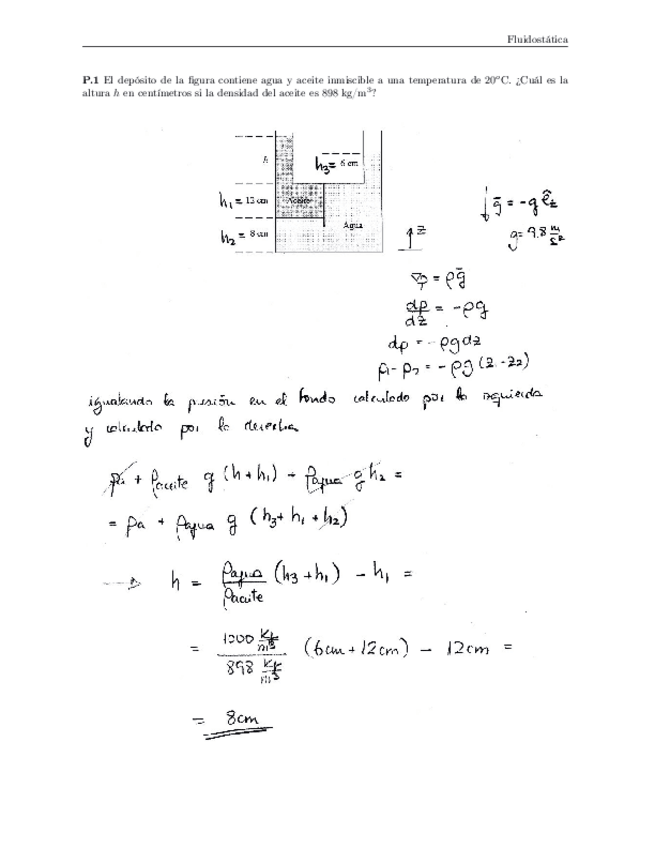 Fluidostática
P.1 El depósito de la figura contiene agua y aceite inmiscible a una temperatura de 20°C. ¿Cuál es la
altura h en centímetros si la densidad del aceite es 898 kg/m³?
h
h₃= 6 cm
h₁ = 12 cm
Aceite
h₂ = 8 cm
Agua
z
ḡ = -g ê_z
g = 9.8 m/s²
∇p = ρḡ
dp/dz = -ρg
dp = -ρgdz
p₁-p₂ = -ρg(z-z₂)
igualando la presión en el fondo calculado por la izquierda
y calculado por la derecha
pa + ρaceite g (h+h₁) + ρagua g h₂ =
= pa + ρagua g (h₃+h₁+h₂)
→ h = ρagua/ρaceite (h₃+h₁) - h₁ =
= 1000 kg/m³ / 898 kg/m³ (6cm+12cm) - 12cm =
= 8cm